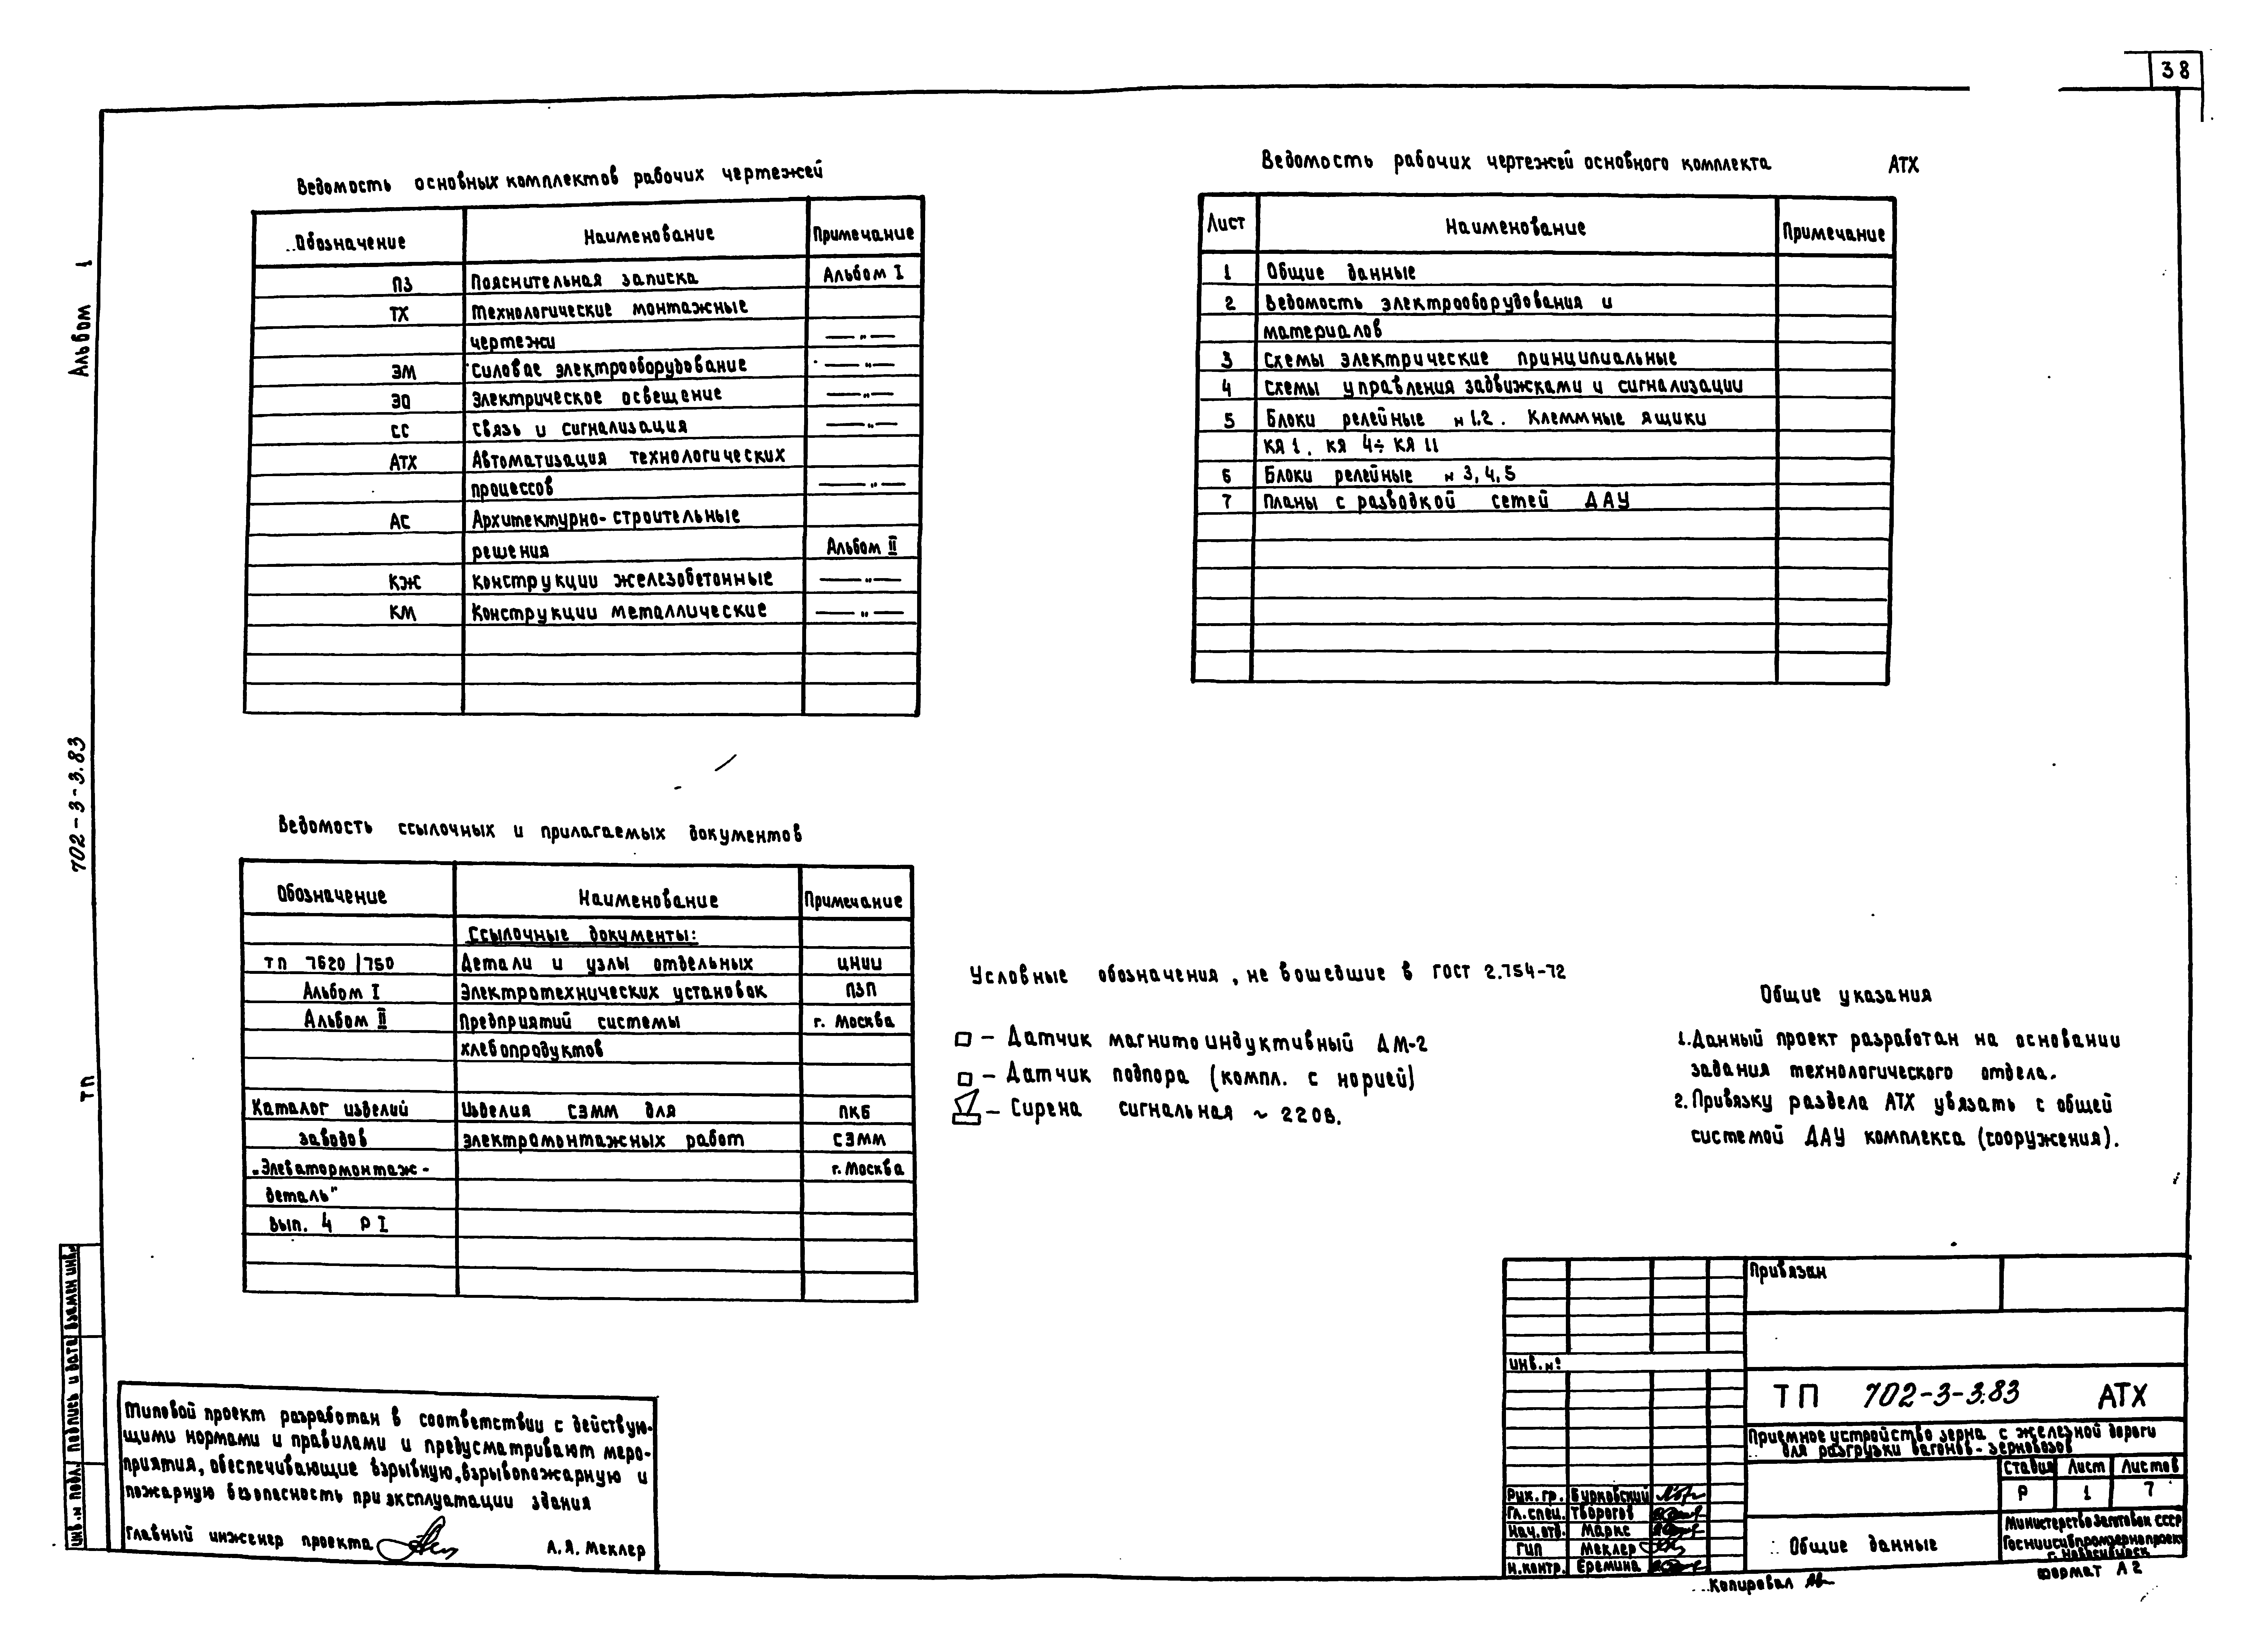 38
Альбом 1
702-3-3.83
ТП
Ведомость основных комплектов рабочих чертежей
Обозначение Наименование Примечание
ПЗ Пояснительная записка Альбом I
ТХ Технологические монтажные
чертежи —„—
ЭМ Силовое электрооборудование —„—
ЭО Электрическое освещение —„—
СС Связь и сигнализация —„—
АТХ Автоматизация технологических
процессов —„—
АС Архитектурно-строительные
решения Альбом II
КЖ Конструкции железобетонные —„—
КМ Конструкции металлические —„—
Ведомость рабочих чертежей основного комплекта АТХ
Лист Наименование Примечание
1 Общие данные
2 Ведомость электрооборудования и
материалов
3 Схемы электрические принципиальные
4 Схемы управления задвижками и сигнализации
5 Блоки релейные № 1,2. Клеммные ящики
КЯ 1, КЯ 4÷ КЯ 11
6 Блоки релейные № 3,4,5
7 Планы с разводкой сетей ДАУ
Ведомость ссылочных и прилагаемых документов
Обозначение Наименование Примечание
Ссылочные документы:
ТП 7620/750 Детали и узлы отдельных ЦНИИ
Альбом I Электротехнических установок ПЗП
Альбом II Предприятий системы г. Москва
хлебопродуктов
Каталог изделий Изделия СЭММ для ПКБ
заводов электромонтажных работ СЭММ
„Элеватормонтаж- г. Москва
деталь"
Вып. 4 Р I
Условные обозначения, не вошедшие в ГОСТ 2.754-72
– Датчик магнитоиндуктивный ДМ-2
– Датчик подпора (компл. с норией)
– Сирена сигнальная ~ 220В.
Общие указания
1. Данный проект разработан на основании
задания технологического отдела.
2. Привязку раздела АТХ увязать с общей
системой ДАУ комплекса (сооружения).
Типовой проект разработан в соответствии с действую-
щими нормами и правилами и предусматривают меро-
приятия, обеспечивающие взрывную, взрывопожарную и
пожарную безопасность при эксплуатации здания
Главный инженер проекта А.Я. Меклер
Инв. № подл. Подпись и дата Взамен инв.
Привязан
Инв. №
ТП 702-3-3.83 АТХ
Приемное устройство зерна с железной дороги
для разгрузки вагонов-зерновозов
Стадия Лист Листов
Р 1 7
Рук. гр. Бурковский
Гл. спец. Творогов
Нач. отд. Маркс
ГИП Меклер
Н. контр. Еремина
Общие данные
Министерство заготовок СССР
Госниисибпромзернопроект
г. Новосибирск
Копировал
Формат А2